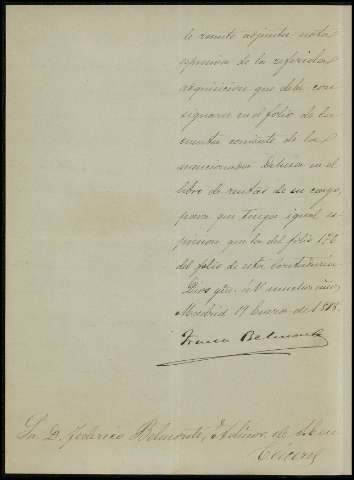 le remito adjunta nota
espresiva de la referida
adquisicion que debe con
signarse en el folio de la
cuenta corriente de la
mencionada Dehesa en el
libro de rentas de su cargo,
para que tenga igual es-
presion que la del folio 170
del folio de esta Contaduria
Dios gue. á V. muchos años,
Madrid 19 Enero de 1878.
Belmonte
Sr. D. Federico Belmonte, Admor. de
Cáceres